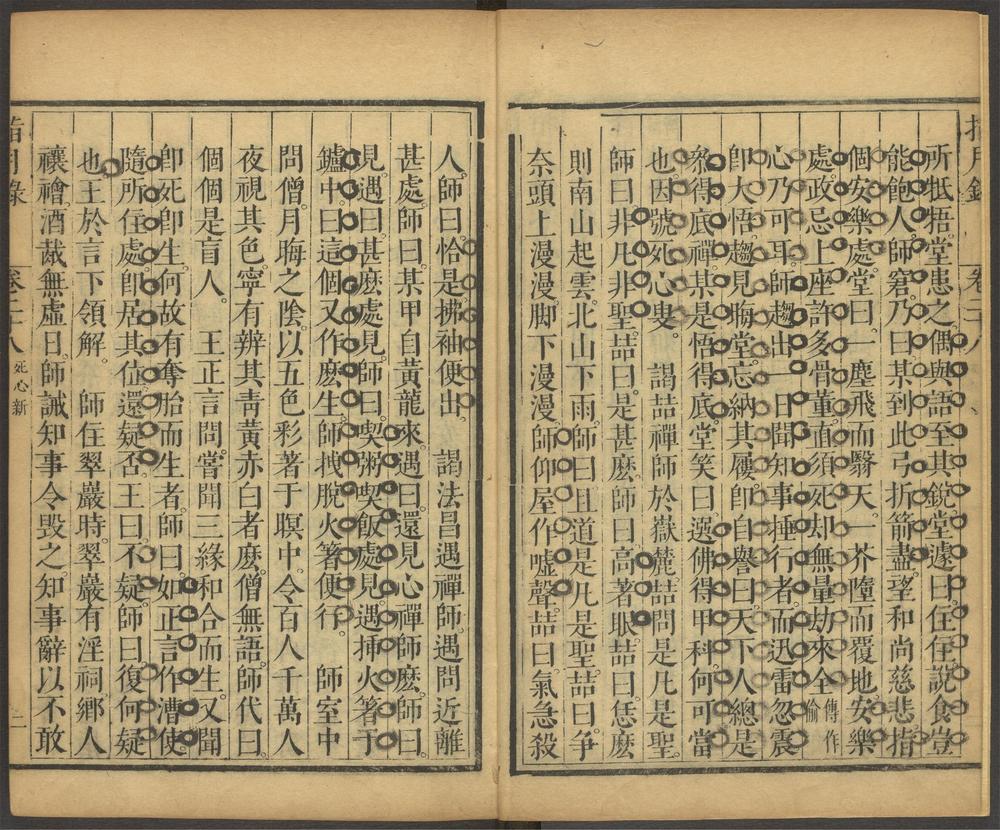 指月錄 卷二十八
所牴牾堂患之偶與語至其銳堂遽曰住住說食豈
能飽人師窘乃曰某到此弓折箭盡望和尚慈悲指
個安樂處堂曰一塵飛而翳天一芥墮而覆地安樂
處政忌上座許多骨董直須死却無量劫來全傳作偷
心乃可耳師趨出一日聞知事捶行者而迅雷忽震
卽大悟趨見晦堂忘納其屨卽自譽曰天下人總是
叅得底禪某是悟得底堂笑曰選佛得甲科何可當
也因號死心叟 謁喆禪師於嶽麓喆問是凡是聖
師曰非凡非聖喆曰是甚麽師曰高著眼喆曰恁麽
則南山起雲北山下雨師曰且道是凡是聖喆曰爭
奈頭上漫漫脚下漫漫師仰屋作噓聲喆曰氣急殺
人師曰恰是拂袖便出 謁法昌遇禪師遇問近離
甚處師曰某甲自黃龍來遇曰還見心禪師麽師曰
見遇曰甚麽處見師曰喫粥喫飯處見遇揷火箸于
鑪中曰這個又作麽生師拽脫火箸便行 師室中
問僧月晦之陰以五色彩著于瞑中令百人千萬人
夜視其色寧有辨其靑黃赤白者麽僧無語師代曰
個個是盲人 王正言問嘗聞三緣和合而生又聞
卽死卽生何故有奪胎而生者師曰如正言作漕使
隨所住處卽居其位還疑否王曰不疑師曰復何疑
也王於言下領解 師住翠巖時翠巖有淫祠鄉人
禳禬酒胾無虛日師誡知事令毀之知事辭以不敢
指月錄 卷二十八 死心新 二